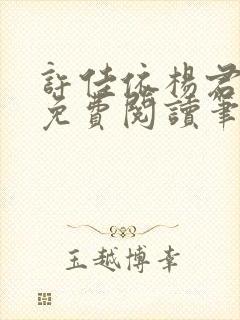 許佳依楊君
免費閱讀筆
玉越博幸